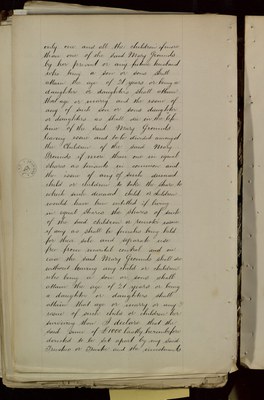 only one and all the children if more
than one of the said Mary Grounds
by her present or any future husband
who being a son or sons shall
attain the age of 21 years or being a
daughter or daughters shall attain
that age or marry and the issue of
any of such son or sons daughter
or daughters as shall die in the life
time of the said Mary Grounds
leaving issue and to be divided amongst
the Children of the said Mary
Grounds if more than one in equal
shares as tenants in common and
the issue of any of such deceased
child or children to take the share
which such deceased child or children
would have been entitled if living
in equal shares the shares of such
of the said children or
if any as shall be females being held
for their sole and separate use
free from marital control and in
case the said Mary Grounds shall die
without leaving any child or children
who being a son or sons shall
attain the age of 21 years or being
a daughter or daughters shall
attain that age or marry or any
issue of such child or children her
surviving then I declare that the
said sum of £1000 lastly hereinbefore
directed to be set apart by my said
Trustees or Trustee and the investments